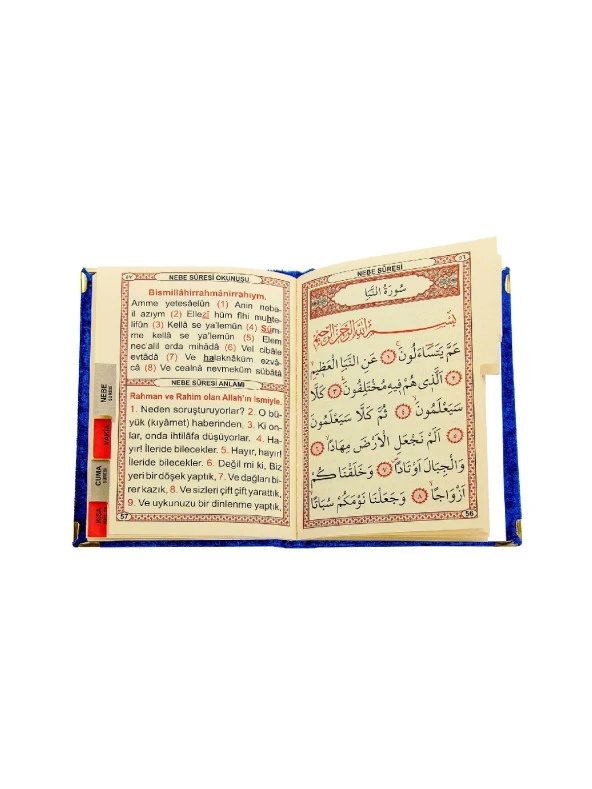 ٥٧
NEBE SÛRESİ OKUNUŞU
Bismillâhirrahmânirrahıym.
Amme yetesâelûn (1) Anin neba-
il azıym (2) Ellezî hüm fîhi muhte-
lifûn (3) Kellâ se ya'lemûn (4) Süm-
me kellâ se ya'lemûn (5) Elem
nec'alil erda mihâdâ (6) Vel cibâle
evtâdâ (7) Ve halaknâküm ezvâ-
câ (8) Ve cealnâ nevmeküm sübâtâ
NEBE SÛRESİ ANLAMI
Rahman ve Rahim olan Allah'ın ismiyle.
1. Neden soruşturuyorlar? 2. O bü-
yük (kıyâmet) haberinden, 3. Ki on-
lar, onda ihtilâfa düşüyorlar. 4. Ha-
yır! İleride bilecekler. 5. Hayır, hayır!
İleride bilecekler. 6. Değil mi ki, Biz
yeri bir döşek yaptık, 7. Ve dağları bi-
rer kazık, 8. Ve sizleri çift çift yarattık,
9. Ve uykunuzu bir dinlenme yaptık,
57
NEBE
VAKIA
CUMA
KISA
NEBE SÛRESİ
٥٦
سُورَةُ النَّبَأِ
بِسْمِ اللّٰهِ الرَّحْمٰنِ الرَّحِيمِ
عَمَّ يَتَسَاءَلُونَۚ ﴿١﴾ عَنِ النَّبَأِ الْعَظِيمِۙ
﴿٢﴾ اَلَّذِى هُمْ فِيهِ مُخْتَلِفُونَۜ ﴿٣﴾ كَلَّا
سَيَعْلَمُونَۙ ﴿٤﴾ ثُمَّ كَلَّا سَيَعْلَمُونَ
﴿٥﴾ اَلَمْ نَجْعَلِ الْاَرْضَ مِهَادًاۙ ﴿٦﴾
وَالْجِبَالَ اَوْتَادًاۖ ﴿٧﴾ وَخَلَقْنَاكُمْ
اَزْوَاجًاۙ ﴿٨﴾ وَجَعَلْنَا نَوْمَكُمْ سُبَاتًاۙ
56